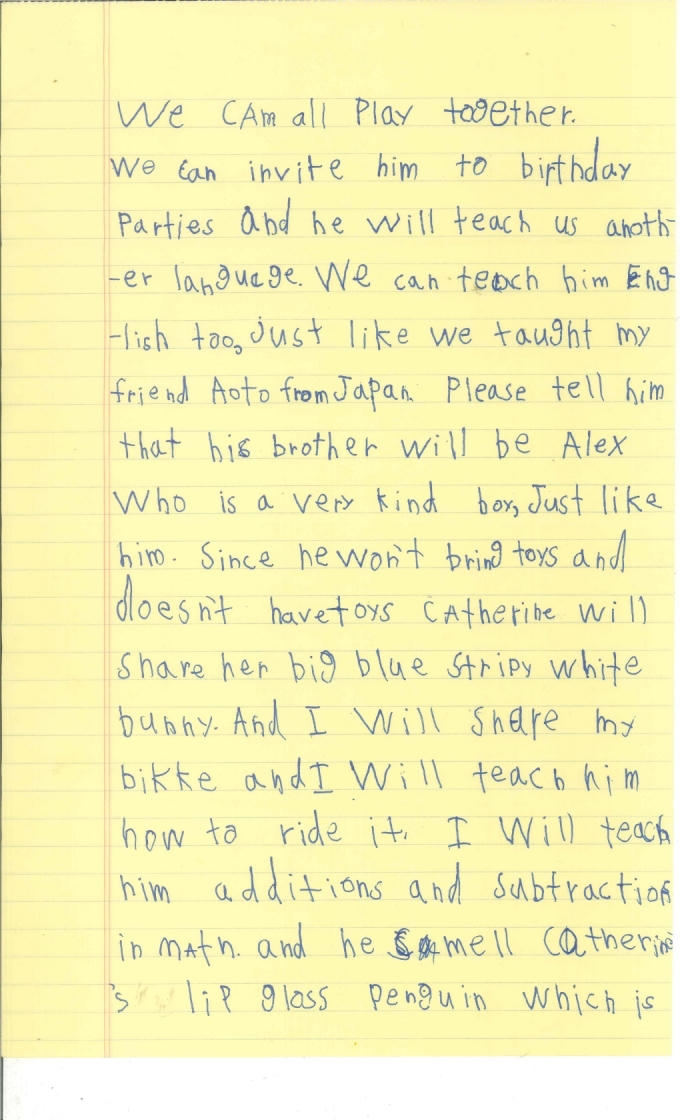 We CAm all Play together.
We can invite him to birthday
Parties and he will teach us anoth-
-er language. We can teach him Eng
-lish too, just like we taught my
friend Aoto from Japan. Please tell him
that his brother will be Alex
Who is a very kind boy, Just like
him. Since he won't bring toys and
doesn't have toys CAtherine will
share her big blue stripy white
bunny. And I Will share my
bikke and I Will teach him
how to ride it. I Will teach
him additions and subtraction
in mAth. and he smell Catherine
's lip gloss Penguin which is